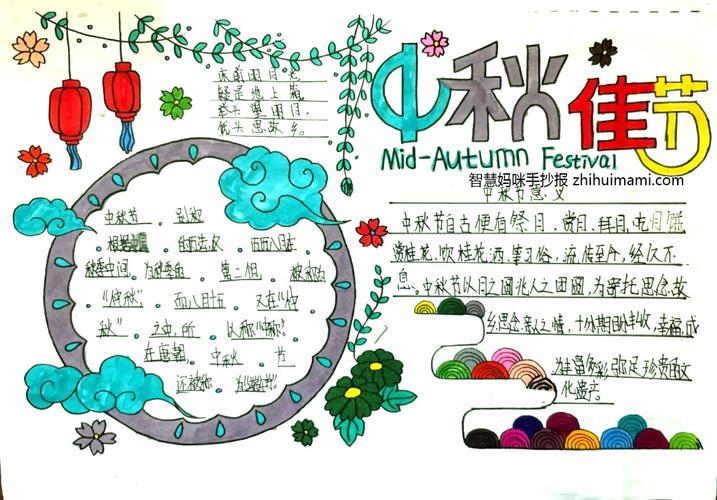 床前明月光
疑是地上霜
举头望明月
低头思故乡。
中秋佳节
Mid-Autumn Festival
智慧妈咪手抄报 zhihuimami.com
中秋节意义
中秋节自古便有祭月、赏月、拜月、吃月饼
赏桂花、饮桂花酒等习俗，流传至今，经久不
息。中秋节以月之圆兆人之团圆，为寄托思念故
乡思念亲人之情，十分期盼丰收，幸福，成
为丰富多彩弥足珍贵的文
化遗产。
中秋节
根据
的历法，农历八月在
秋季中间，为秋季的 第二个月，被称为
“仲秋”，而八月十五 又在“仲
秋”之中，所以称“中秋”。
在唐朝，中秋节
还被称为“端正月”